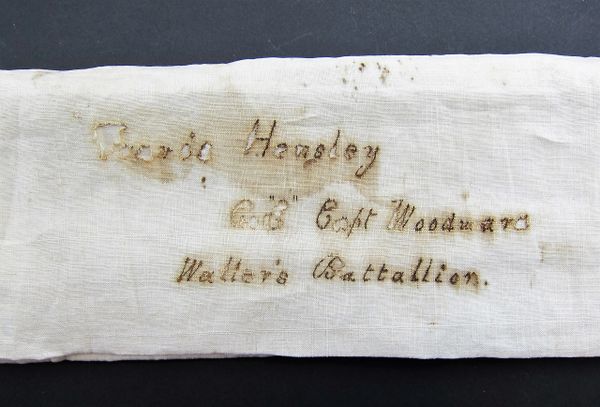 Travis Hensley
Co Capt Woodward
Waller's Battallion.